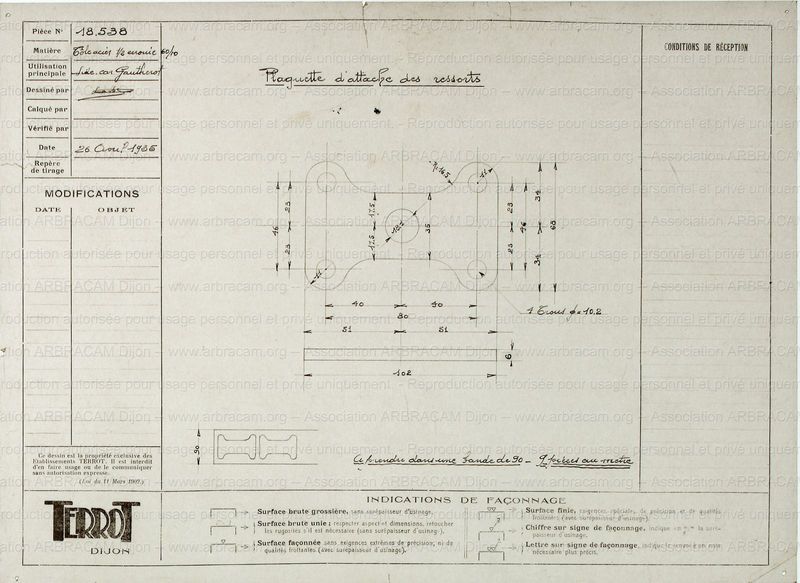 Pièce N° 18.538
Matière Tôle acier 60/10
Utilisation principale Side-car Gautherot
Dessiné par
Calqué par
Vérifié par
Date 26 1936
Repère de tirage
MODIFICATIONS
DATE OBJET
CONDITIONS DE RÉCEPTION
Plaquette d'attache des ressorts
R=16.5
34
23
46
23
17.5
17.5
35
23
23
46
34
34
68
40 40
80
51 51
4 Trous φ=10.2
6
102
90
A prendre dans une bande de 90 - 9 pièces au mètre
Ce dessin est la propriété exclusive des
Etablissements TERROT. Il est interdit
d'en faire usage ou de le communiquer
sans autorisation expresse.
(Loi du 11 Mars 1902.)
TERROT
DIJON
INDICATIONS DE FAÇONNAGE
Surface brute grossière, sans surépaisseur d'usinage.
Surface brute unie : respecter aspect et dimensions, retoucher
les rugosités s'il est nécessaire (sans surépaisseur d'usinage.)
Surface façonnée sans exigences extrêmes de précision, ni de
qualités frottantes (avec surépaisseur d'usinage).
Surface finie, exigences spéciales de précision et de qualités
frottantes (avec surépaisseur d'usinage).
Chiffre sur signe de façonnage, indique en m/m la surépaisseur d'usinage.
Lettre sur signe de façonnage, indique le
nécessaire plus précis.
www.arbracam.org – Association ARBRACAM Dijon – www.arbracam.org – Association ARBRACAM Dijon
Reproduction autorisée pour usage personnel et privé uniquement. - Reproduction autorisée pour usage personnel et privé uniquement.